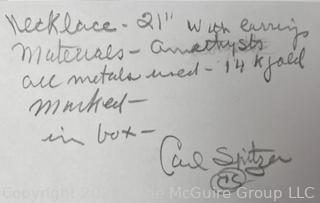 Necklace - 21" with earrings
Materials - Amethysts
all metals used - 14 k gold
marked -
in box -
Carl Spitzer
CS
Copyright 202 The McGuire Group LLC